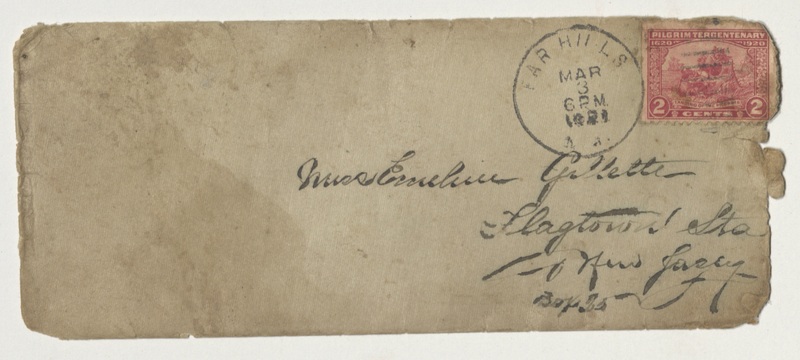 FAR HILLS
MAR
3
6 P.M.
1921
N. J.
PILGRIM TERCENTENARY
1620 1920
2 CENTS 2
Miss Emeline Gillette
Flagtown Sta
New Jersey
Box 35